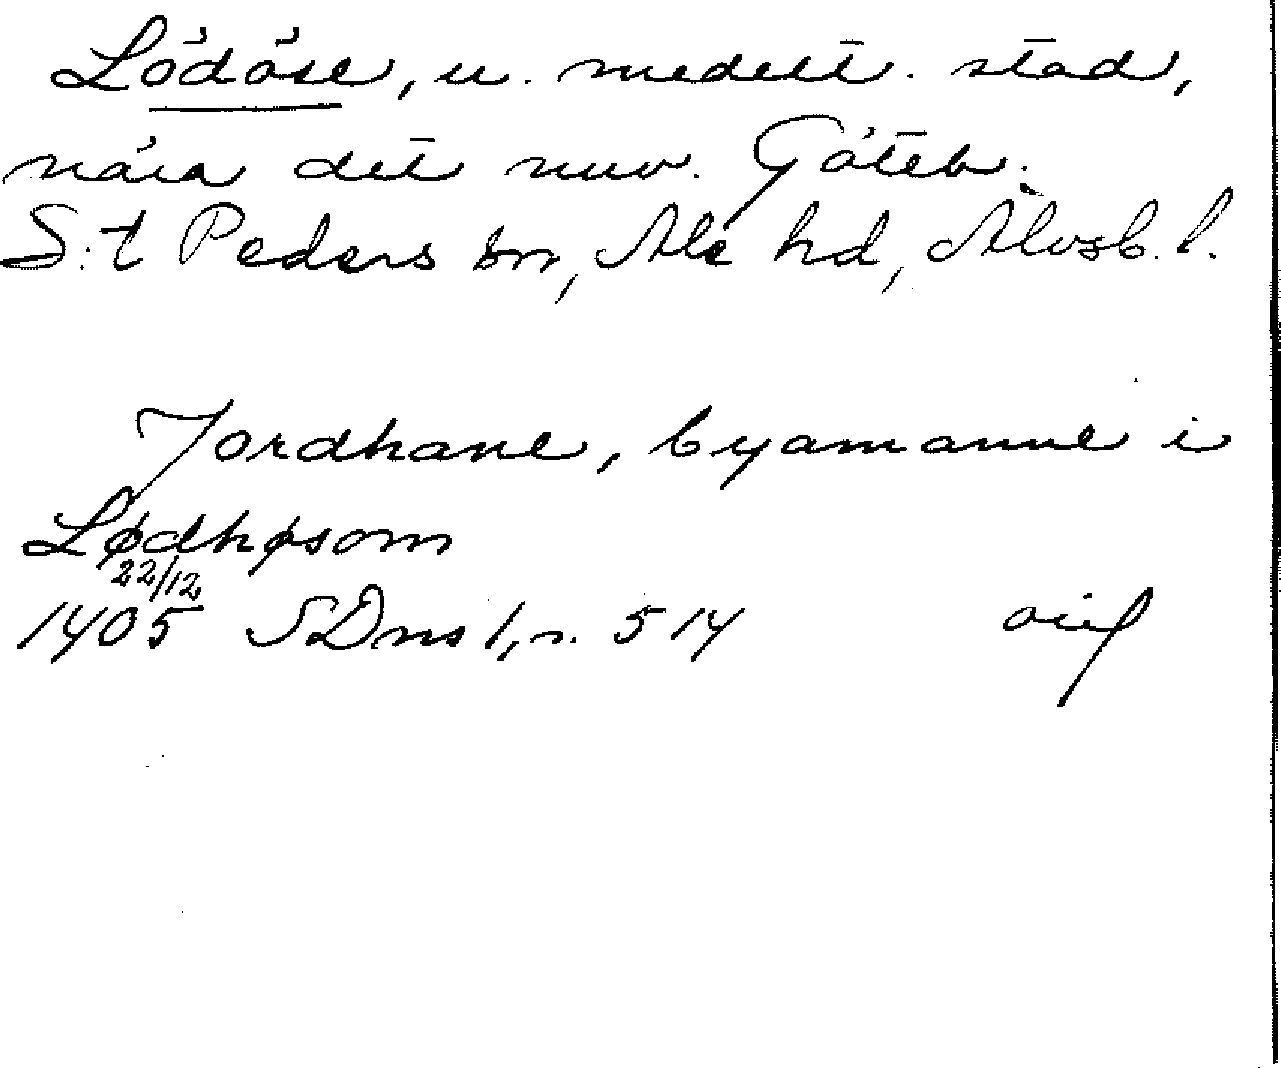 Lödöse, u. medelt. stad,
nära det nuv. Göteb.
S:t Peders sn, Ale hd, Älvsb. l.
Jordhane, byamanne i
Lødhøsom
22/12
1405 SDns 1, n. 514